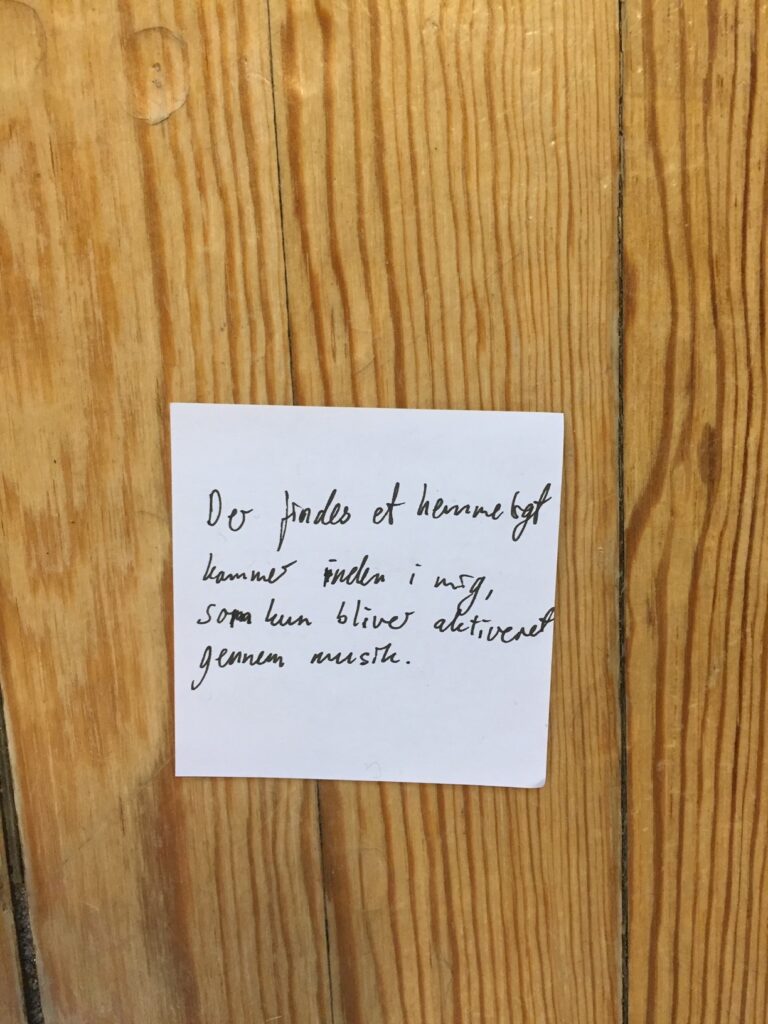 Der findes et hemmeligt
kammer inden i mig,
som kun bliver aktiveret
gennem musik.